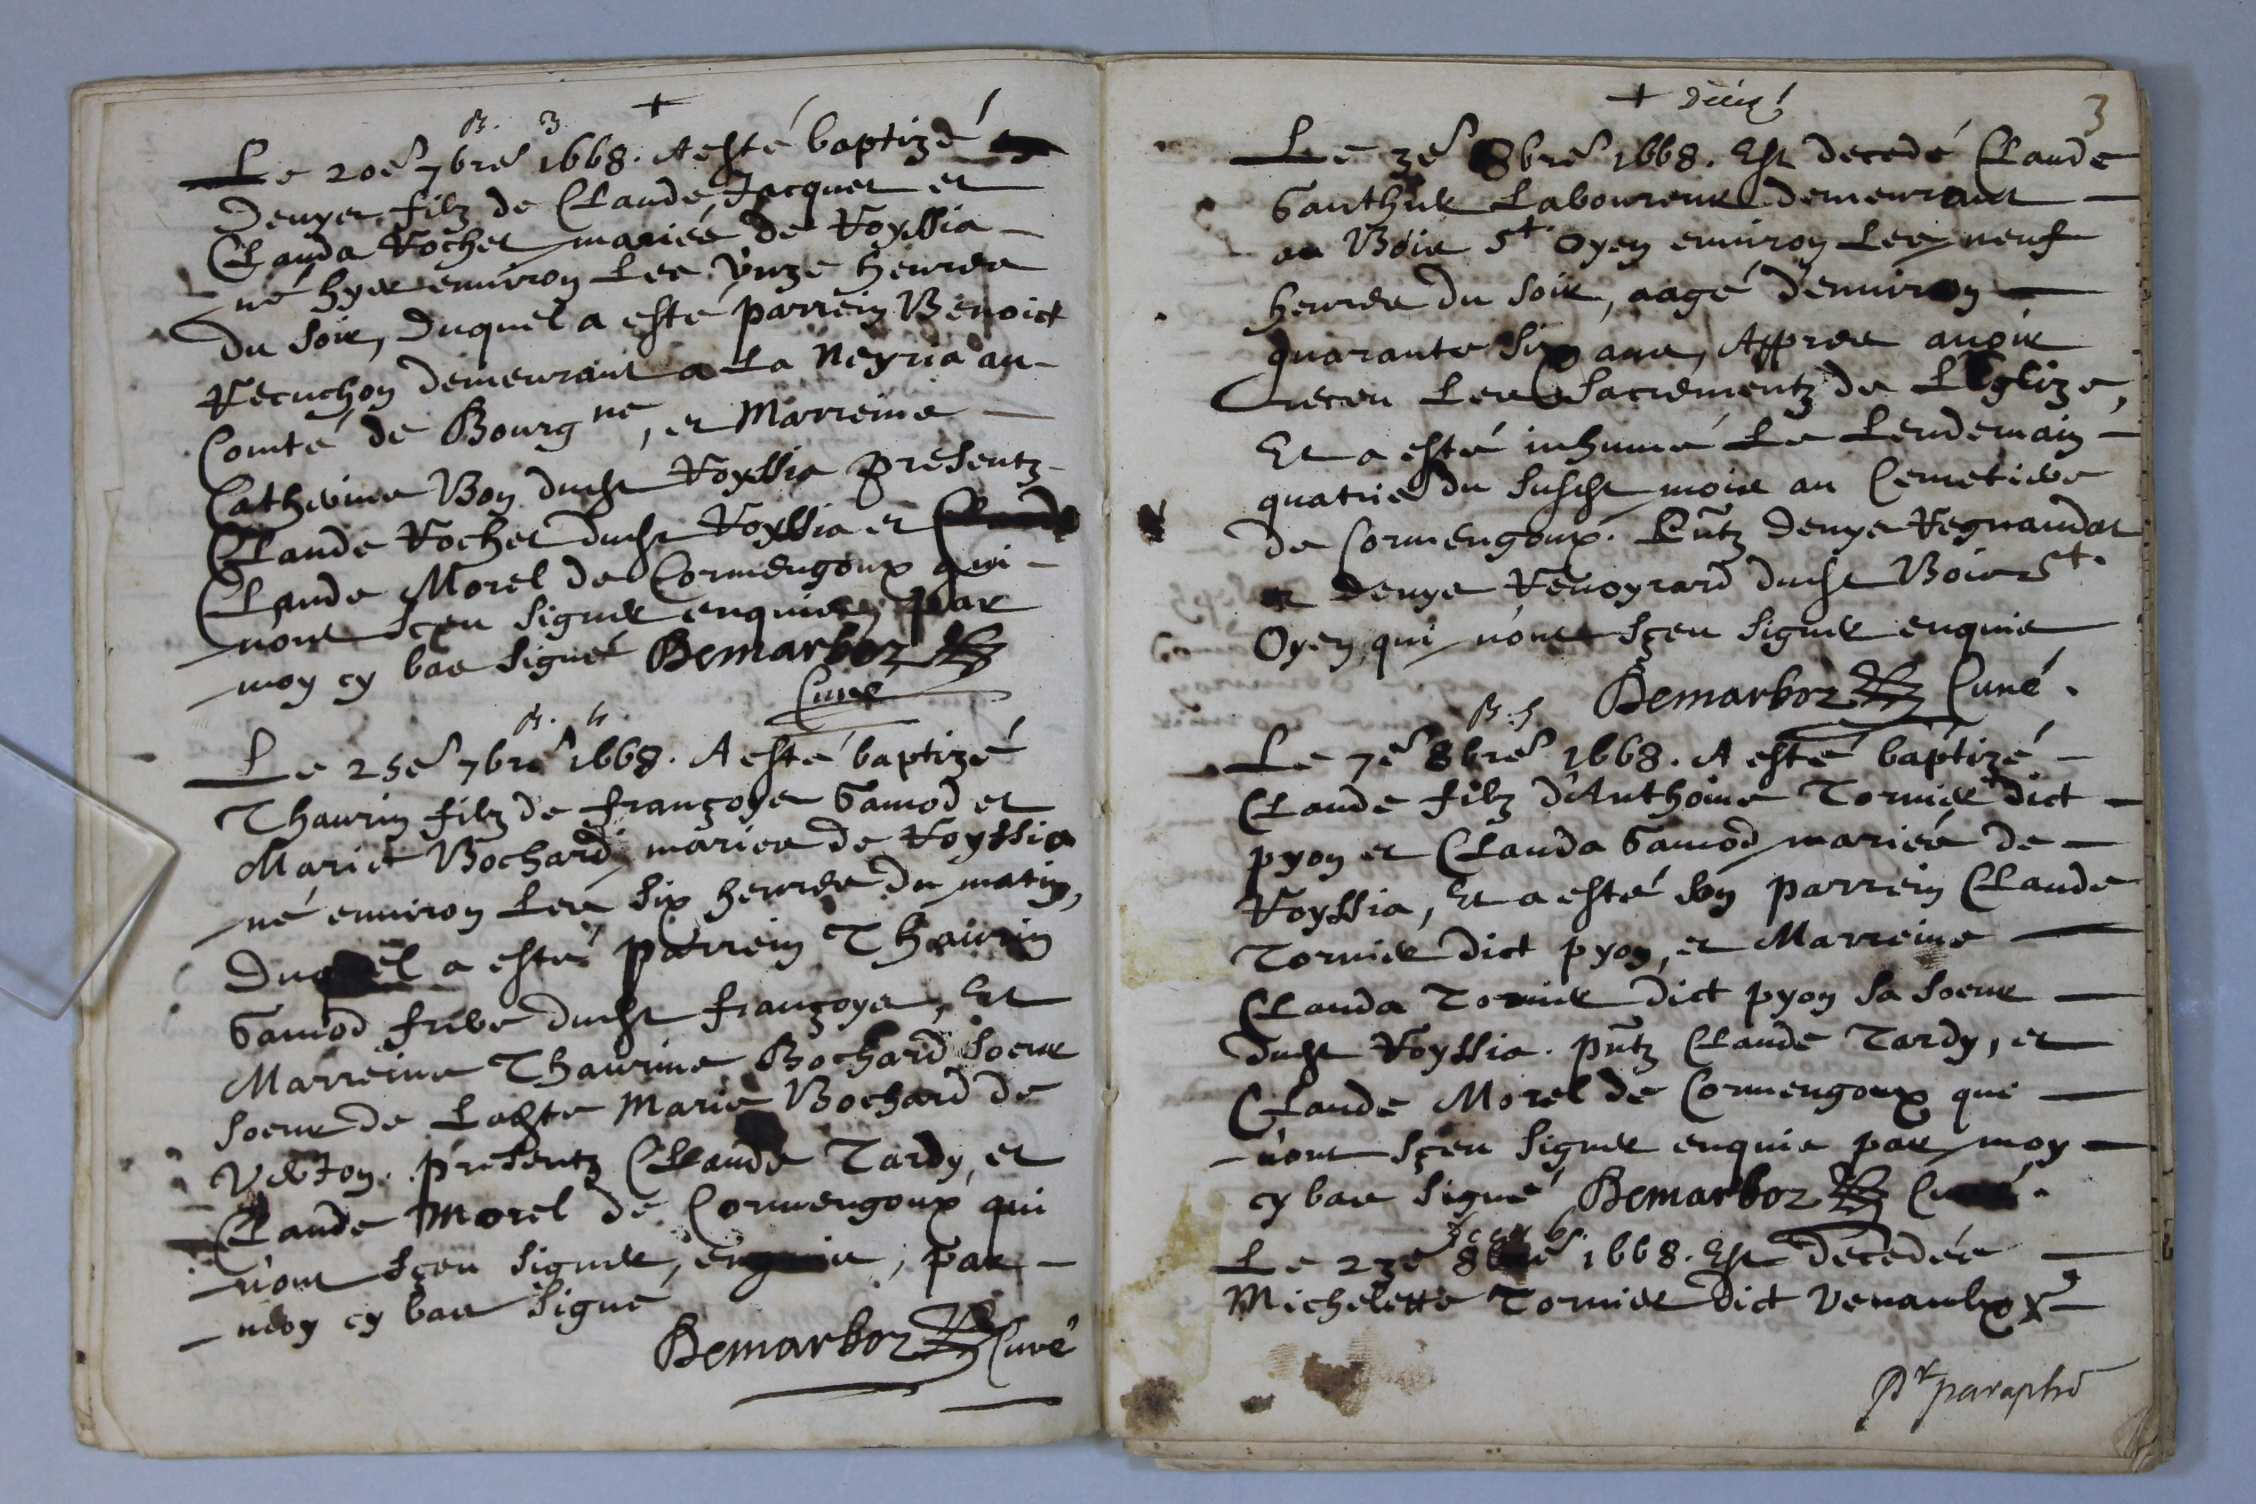 +
B. 3
Le 20e 7bre 1668. A esté baptizé
Denyer filz de Claude Jacquet et
Clauda Rochet mariés de Royssia
né hyer environ Les unze heures
du soir, duquel a esté parrein Benoict
Recuchon demeurant a La Neyria au
Comté de Bourgne, et Marreine
Catherine Bon dudt Royssia presentz
Claude Rochet dudt Royssia et
Claude Morel de Cormengoux qui
n'ont sçeu signer enquis par
moy cy bas signé Bemarboz
Curé
B. 4.
Le 25e 7bre 1668. A esté baptizé
Thaurin filz de françoys Gamod et
Marie Bochard mariés de Royssia
né environ Les six heures du matin,
Duquel a esté parrein Thaurin
Gamod frere dudt françoys, Et
Marreine Thaurine Bochard soeur
soeur de Ladte Marie Bochard de
presentz Claude Tardy et
Claude Morel de Cormengoux qui
n'ont sçeu signer, enquis, par
moy cy bas signe
Bemarboz Curé
3
+
Le 3e 8bre 1668. Est decedé Claude
Gauthier Laboureur demeurant
au Bois St. Oyen environ Les neuf
heures du soir, aagé d'environ
quarante six ans, Appres avoir
receu Les Sacrementz de L'Eglize,
Et a esté inhumé Le Lendemain
quatrie du susdt mois au Cemetiere
de Cormengoux. Pntz Denys Regnaudat
et Denys Renoyrard dudt Bois St.
Oyen, qui n'ont sçeu signer enquis
Bemarboz Curé.
B. 5
Le 7e 8bre 1668. A esté baptizé
Claude filz d'Anthoine Tornier dict
pyon et Clauda Gamod mariés de
Royssia, Et a esté son parrein Claude
Tornier dict pyon, et Marreine
Clauda Tornier dict pyon sa soeur
dudt Royssia. pntz Claude Tardy, et
Claude Morel de Cormengoux qui
n'ont sçeu signer enquis par moy
cy bas signé Bemarboz Curé.
Le 23e 8bre 1668. Est decedée
Michelette Tornier dict
paraphé